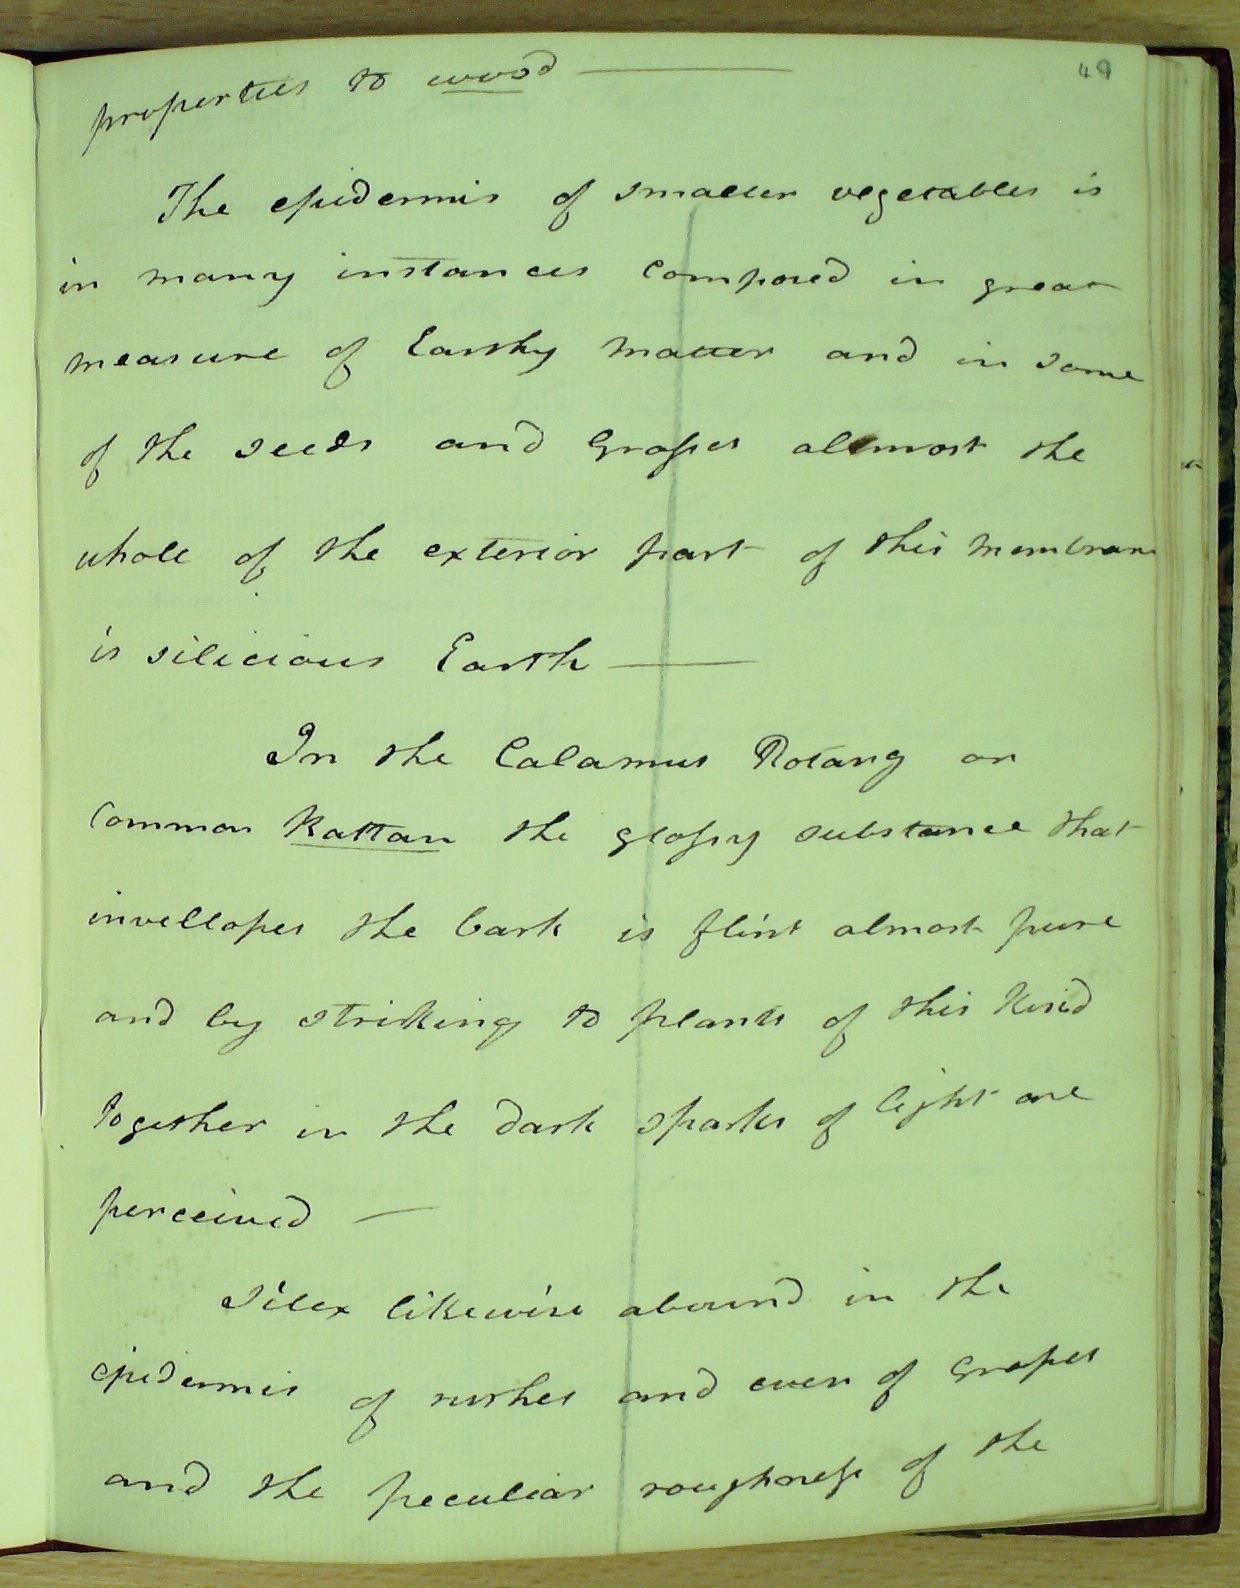 49
properties to wood —
The epidermis of smaller vegetables is
in many instances composed in great
measure of Earthy matter and in some
of the seeds and Grasses allmost the
whole of the exterior part of this membran
is silicious Earth —
In the Calamus Rotang or
Common Rattan the glossy substance that
invellopes the bark is flint almost pure
and by striking to plants of this Kind
together in the dark sparks of light are
perceived —
Silex likewise abound in the
epidermis of rushes and even of Grasses
and the peculiar roughness of the